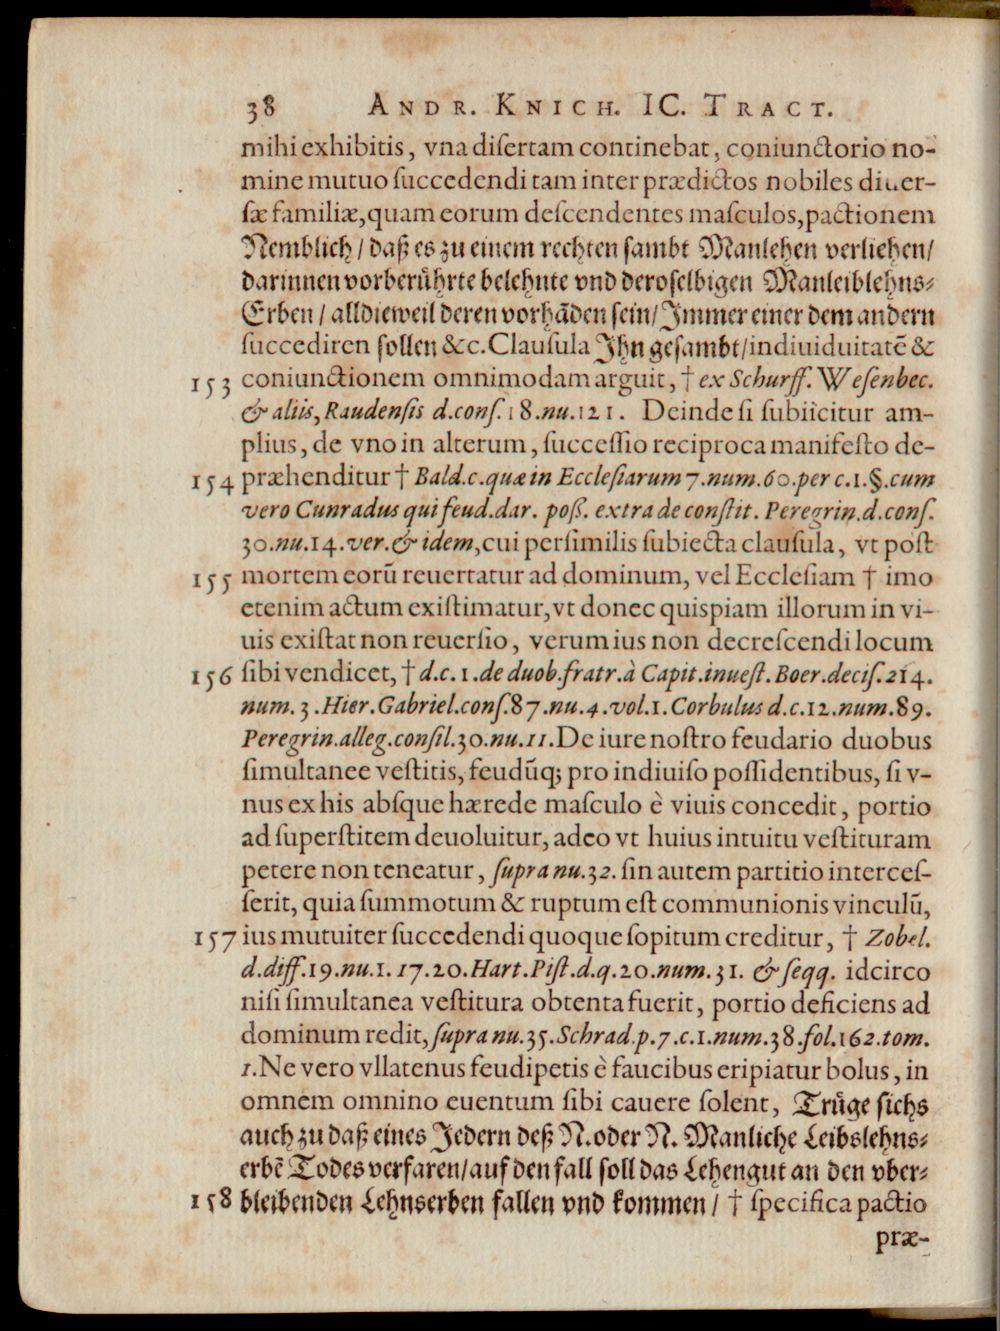 38 ANDR. KNICH. IC. TRACT.
mihi exhibitis, vna disertam continebat, coniunctorio no-
mine mutuo succedendi tam inter prædictos nobiles diuer-
sæ familiæ, quam eorum descendentes masculos, pactionem
Nemblich / daß es zu einem rechten sambt Manlehen verliehen /
darinnen vorberührte belehnte vnd deroselbigen Manleiblehns-
Erben / alldieweil deren vorhãden sein / Immer einer dem andern
succediren sollen &c. Clausula Ihn gesambt / indiuiduitatẽ &
153 coniunctionem omnimodam arguit, † ex Schurff. Wesenbec.
& aliis, Raudensis d. cons. 18. nu. 121. Deinde si subiicitur am-
plius, de vno in alterum, successio reciproca manifesto de-
154 præhenditur † Bald. c. quæ in Ecclesiarum 7. num. 60. per c. 1. §. cum
vero Cunradus qui feud. dar. poss. extra de constit. Peregrin. d. cons.
30. nu. 14. ver. & idem, cui persimilis subiecta clausula, vt post
155 mortem eorũ reuertatur ad dominum, vel Ecclesiam † imo
etenim actum existimatur, vt donec quispiam illorum in vi-
uis existat non reuersio, verum ius non decrescendi locum
156 sibi vendicet, † d. c. 1. de duob. fratr. à Capit. inuest. Boer. decis. 214.
num. 3. Hier. Gabriel. cons. 87. nu. 4. vol. 1. Corbulus d. c. 12. num. 89.
Peregrin. alleg. consil. 30. nu. 11. De iure nostro feudario duobus
simultanee vestitis, feudũq; pro indiuiso possidentibus, si v-
nus ex his absque hærede masculo è viuis concedit, portio
ad superstitem deuoluitur, adeo vt huius intuitu vestituram
petere non teneatur, supra nu. 32. sin autem partitio interces-
serit, quia summotum & ruptum est communionis vinculũ,
157 ius mutuiter succedendi quoque sopitum creditur, † Zobel.
d. diff. 19. nu. 1. 17. 20. Hart. Pist. d. q. 20. num. 31. & seqq. idcirco
nisi simultanea vestitura obtenta fuerit, portio deficiens ad
dominum redit, supra nu. 35. Schrad. p. 7. c. 1. num. 38. fol. 162. tom.
1. Ne vero vllatenus feudipetis è faucibus eripiatur bolus, in
omnem omnino euentum sibi cauere solent, Trüge sichs
auch zu daß eines Jedern deß N. oder N. Manliche Leibslehns-
erbẽ Todes verfaren / auf den fall soll das Lehengut an den vber-
158 bleibenden Lehnserben fallen vnd kommen / † specifica pactio
præ-